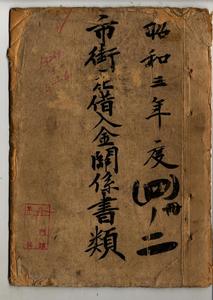 昭和三年度
(四冊ノ二)
市街化借入金関係書類